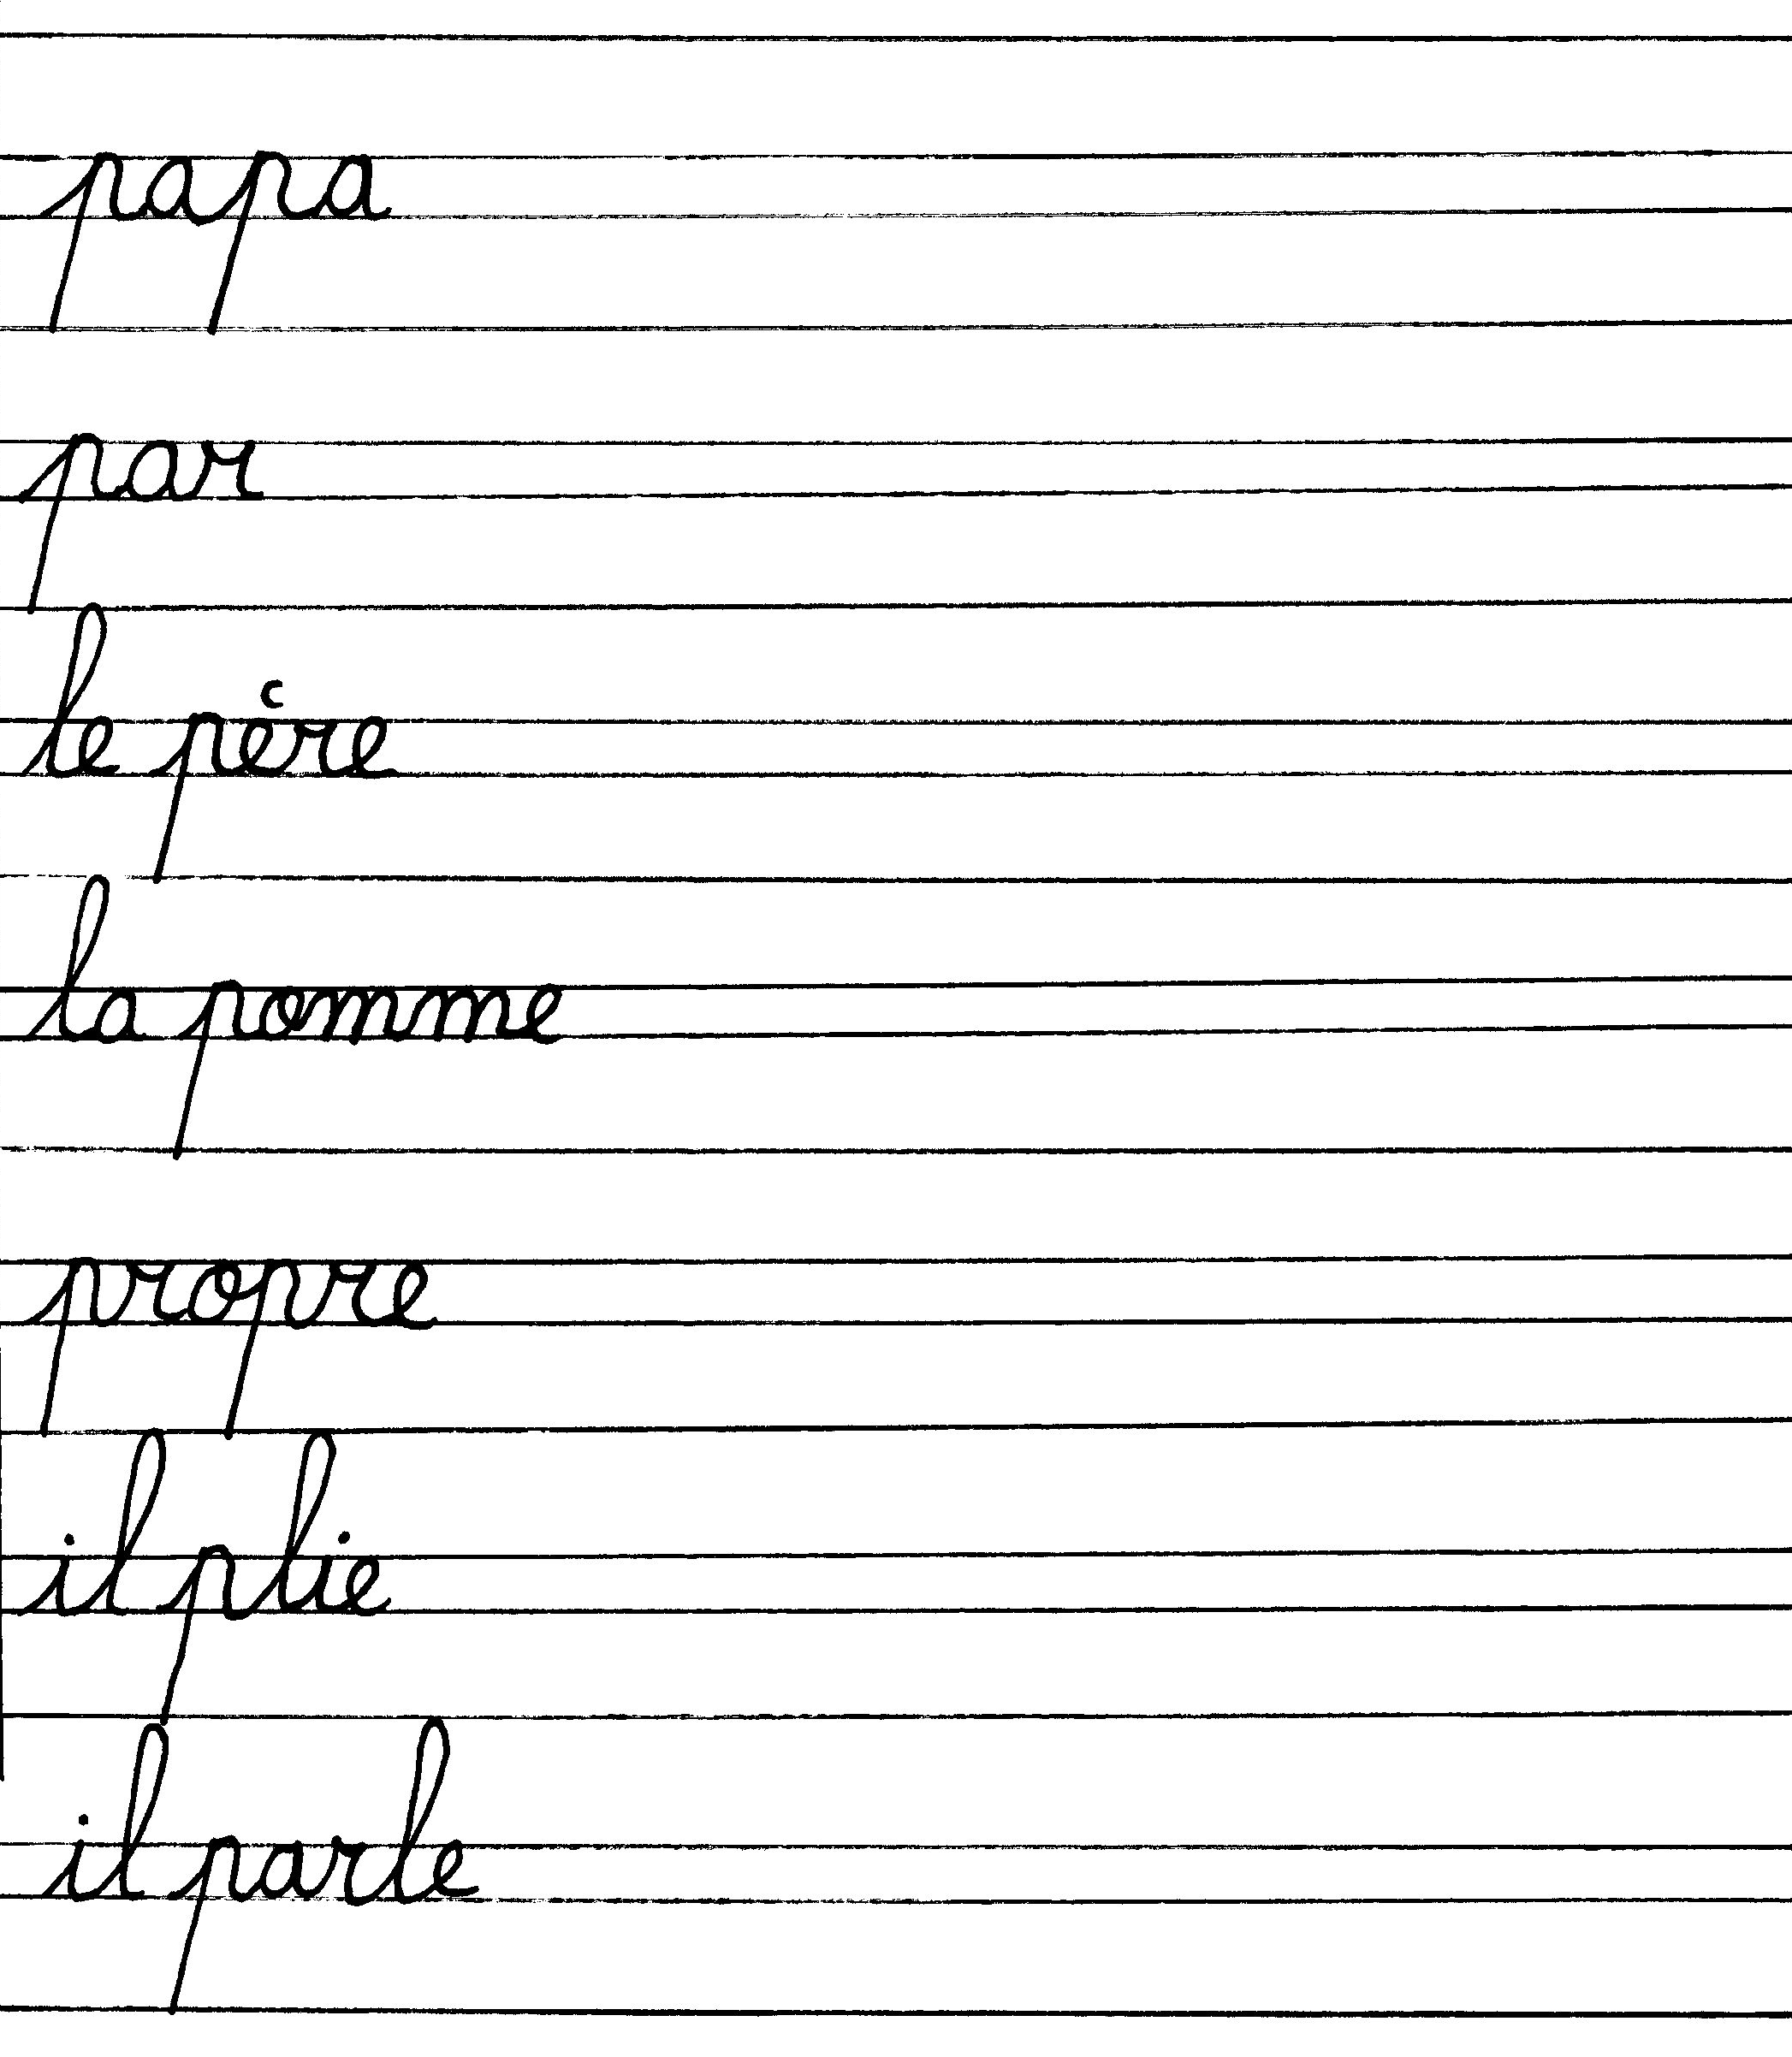 papa
par
le père
la pomme
propre
il plie
il parle